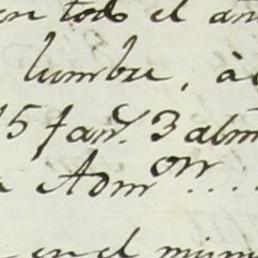 en todo el añ
lumbre, á
15 fan.s 3 alm
Adm on ....
en el mism